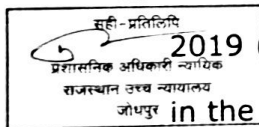 सही-प्रतिलिपि
2019
प्रशासनिक अधिकारी न्यायिक
राजस्थान उच्च न्यायालय
जोधपुर in the